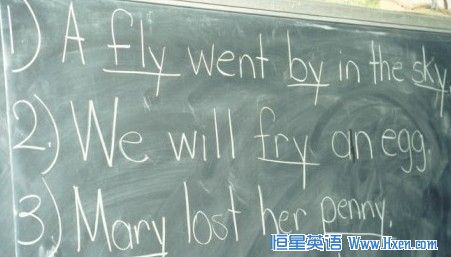 1) A fly went by in the sky.
2.) We will fry an egg.
3.) Mary lost her penny.
恒星英语 Www.Hxen.com